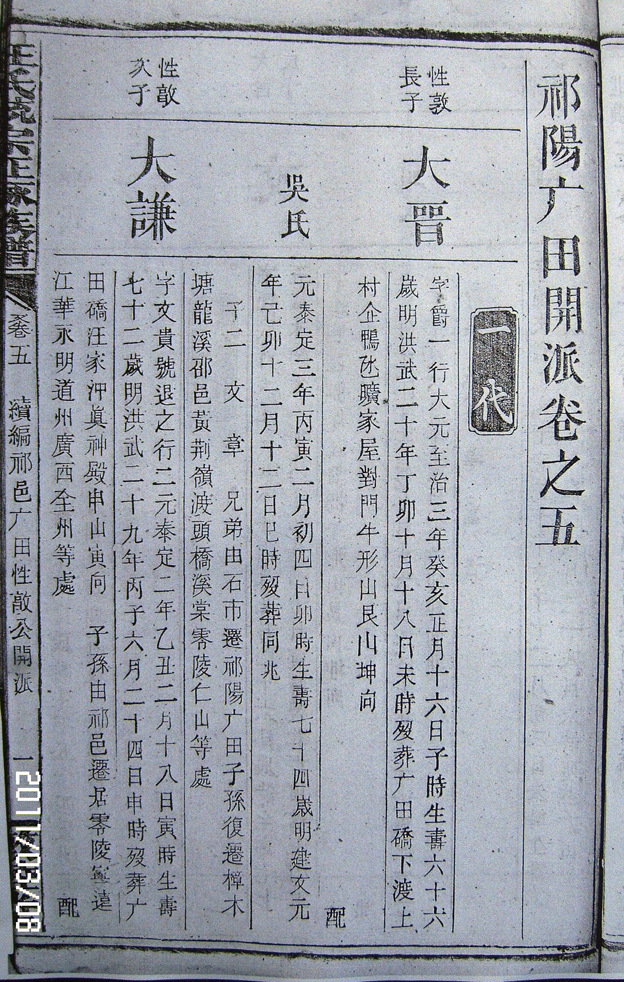 祁陽广田開派卷之五
一代
性敦長子
大晋
字爵一行大元至治三年癸亥正月十六日子時生壽六十六
歲明洪武二十年丁卯十月十八日未時歿葬广田礄下渡上
村企鴨氹曠家屋對門牛形山艮山坤向
配
吳氏
元泰定三年丙寅二月初四日卯時生壽七十四歲明建文元
年己卯十二月十二日巳時歿葬同兆
子二 文 章 兄弟由石市遷祁陽广田子孫復遷樟木
塘龍溪邵邑黃荆嶺渡頭橋溪棠零陵仁山等處
性敦次子
大謙
字文貴號退之行二元泰定二年乙丑二月十八日寅時生壽
七十二歲明洪武二十九年丙子六月二十四日申時歿葬广
田礄汪家沖眞神殿申山寅向 子孫由祁邑遷居零陵寧遠
江華永明道州廣西全州等處
配
汪氏統宗正脉族譜
卷五
續編祁邑广田性敦公開派
一
2011/03/08